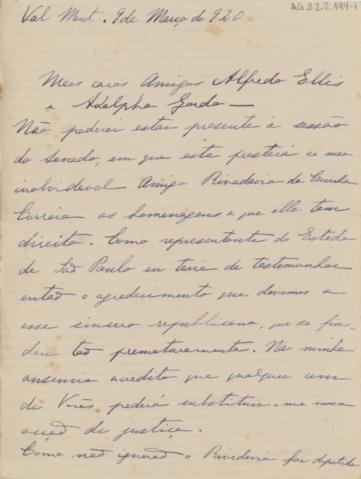 AG 3.2.2.194-1
Val Mont. 9 de Março de 920
Meus caros Amigos Alfredo Ellis
e Adolpho Gordo —
Não poderei estar presente á sessão
do senado, em que este prestará ao meu
inolvidavel Amigo Rivadavia da Cunha
Correia as homenagens a que elle tem
direito. Como representante do Estado
de São Paulo eu teria de testemunhar
então o agradecimento que devemos a
esse sincero republicano, que se fin-
dou tão prematuramente. Na minha
ausencia acredito que qualquer um
de Vocês poderá substituir-me nessa
acção de justiça.
Como não ignoraes o Rivadavia foi deputado